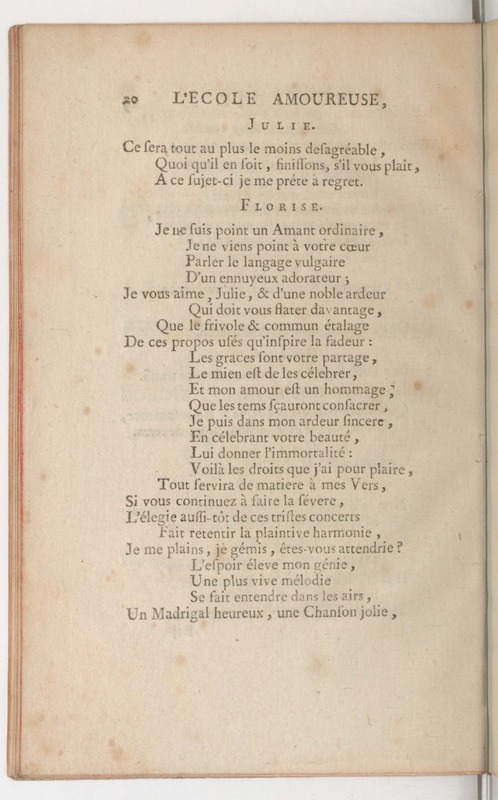 20 L'ECOLE AMOUREUSE,
JULIE.
Ce ſera tout au plus le moins deſagréable,
Quoi qu'il en ſoit, finiſſons, s'il vous plaît,
A ce ſujet-ci je me préte à regret.
FLORISE.
Je ne ſuis point un Amant ordinaire,
Je ne viens point à votre cœur
Parler le langage vulgaire
D'un ennuyeux adorateur;
Je vous aime, Julie, & d'une noble ardeur
Qui doit vous flater davantage,
Que le frivole & commun étalage
De ces propos uſés qu'inſpire la fadeur:
Les graces ſont votre partage,
Le mien eſt de les célebrer,
Et mon amour eſt un hommage;
Que les tems ſçauront conſacrer,
Je puis dans mon ardeur ſincere,
En célebrant votre beauté,
Lui donner l'immortalité:
Voilà les droits que j'ai pour plaire,
Tout ſervira de matiere à mes Vers,
Si vous continuez à faire la ſévere,
L'élegie auſſi-tôt de ces triſtes concerts
Fait retentir la plaintive harmonie,
Je me plains, je gémis, êtes-vous attendrie?
L'eſpoir éleve mon génie,
Une plus vive mélodie
Se fait entendre dans les airs,
Un Madrigal heureux, une Chanſon jolie,